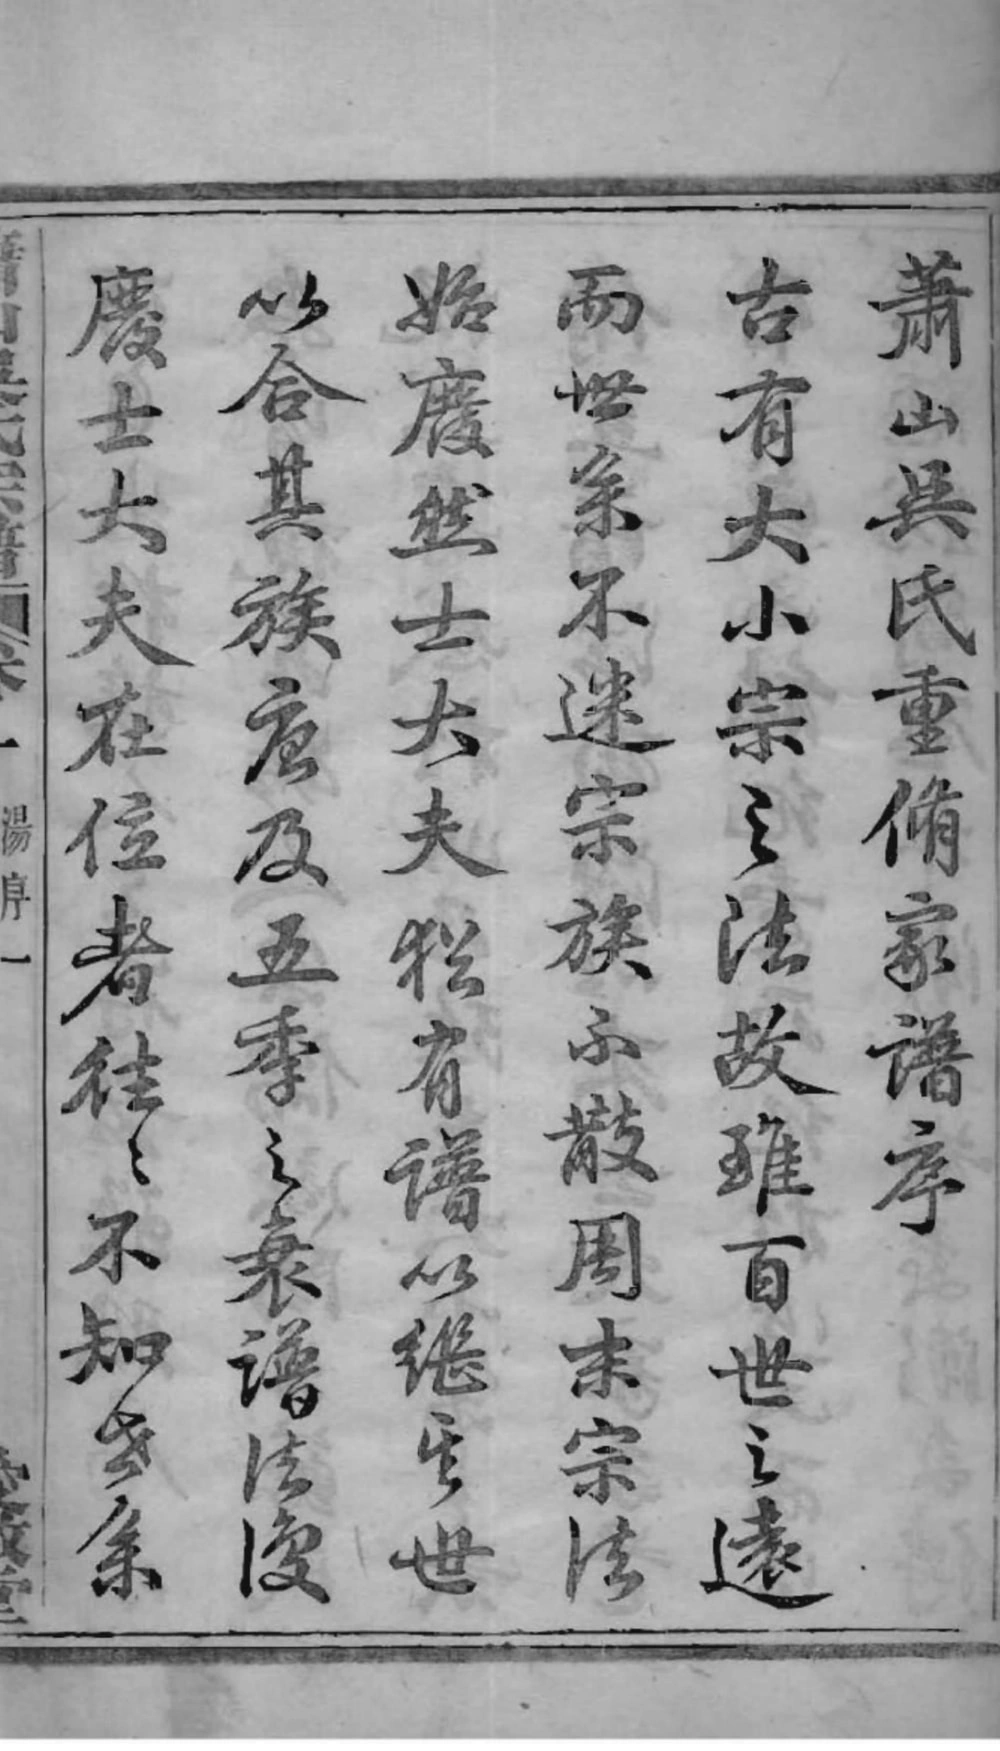 蕭山吳氏重脩家譜序
古有大小宗之法故雖百世之遠
而世系不迷宗族不散周末宗法
始廢然士大夫猶有譜以繼其世
以合其族唐及五季之衰譜法復
廢士大夫在位者往〻不知世系
蕭山吳氏宗譜 卷一 湯序 一